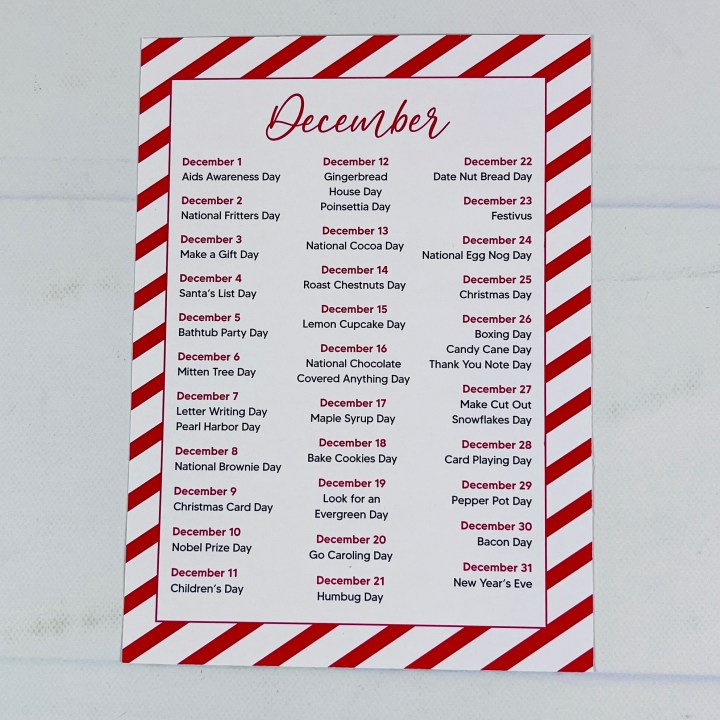 December
December 1
Aids Awareness Day
December 2
National Fritters Day
December 3
Make a Gift Day
December 4
Santa's List Day
December 5
Bathtub Party Day
December 6
Mitten Tree Day
December 7
Letter Writing Day
Pearl Harbor Day
December 8
National Brownie Day
December 9
Christmas Card Day
December 10
Nobel Prize Day
December 11
Children's Day
December 12
Gingerbread
House Day
Poinsettia Day
December 13
National Cocoa Day
December 14
Roast Chestnuts Day
December 15
Lemon Cupcake Day
December 16
National Chocolate
Covered Anything Day
December 17
Maple Syrup Day
December 18
Bake Cookies Day
December 19
Look for an
Evergreen Day
December 20
Go Caroling Day
December 21
Humbug Day
December 22
Date Nut Bread Day
December 23
Festivus
December 24
National Egg Nog Day
December 25
Christmas Day
December 26
Boxing Day
Candy Cane Day
Thank You Note Day
December 27
Make Cut Out
Snowflakes Day
December 28
Card Playing Day
December 29
Pepper Pot Day
December 30
Bacon Day
December 31
New Year's Eve